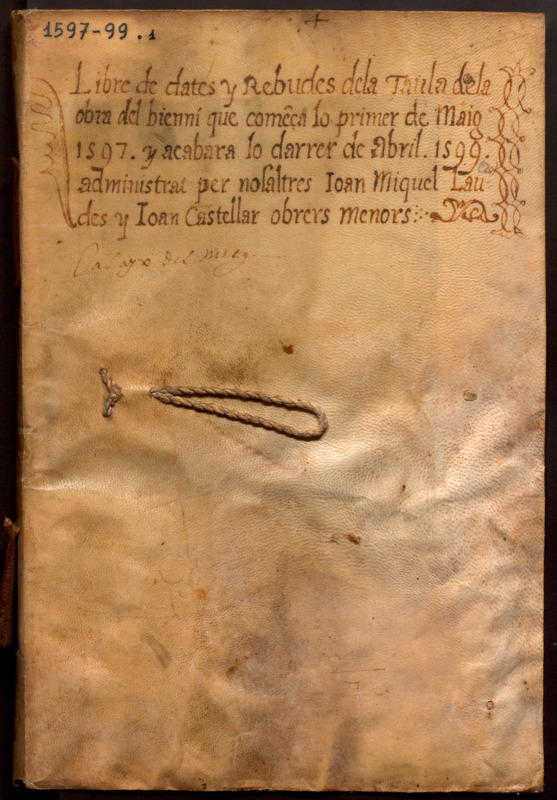 1597-99.1
Libre de dates y Rebudes dela Taula dela
obra del bienni que comẽca lo primer de Maio
1597. y acabara lo darrer de Abril. 1599.
administrat per nosaltres Ioan Miquel Lau-
des y Ioan Castellar obrers menors
del